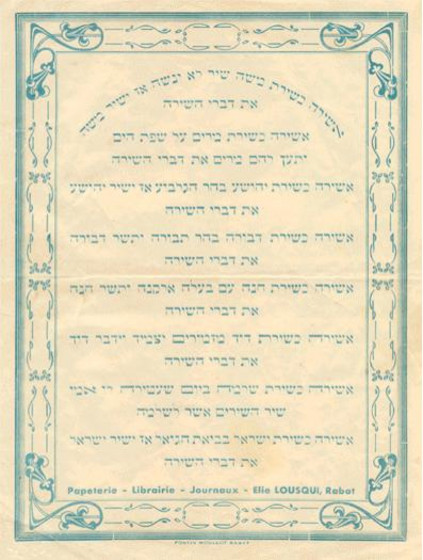 אשירה כשירת משה שיר לא ינשה אז ישיר משה
את דברי השירה
אשירה כשירת מרים על שפת הים
ותען להם מרים את דברי השירה
אשירה כשירת יהושע בהר הגלבוע אז ישיר יהושע
את דברי השירה
אשירה כשירת דבורה בהר תבורה ותשר דבורה
את דברי השירה
אשירה כשירת חנה עם בעלה אלקנה ותשר חנה
את דברי השירה
אשירה כשירת דוד וידבר דוד
את דברי השירה
אשירה כשירת שלמה
שיר השירים אשר לשלמה
אשירה כשירת ישראל בביאת הגואל אז ישיר ישראל
את דברי השירה
Papeterie - Librairie - Journaux - Elie LOUSQUI, Rabat